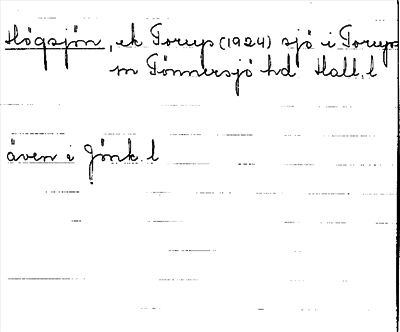 Högsjön, ek Torup (1924) sjö i Torups
sn Tönnersjö hd Hall. l
även i Jönk. l